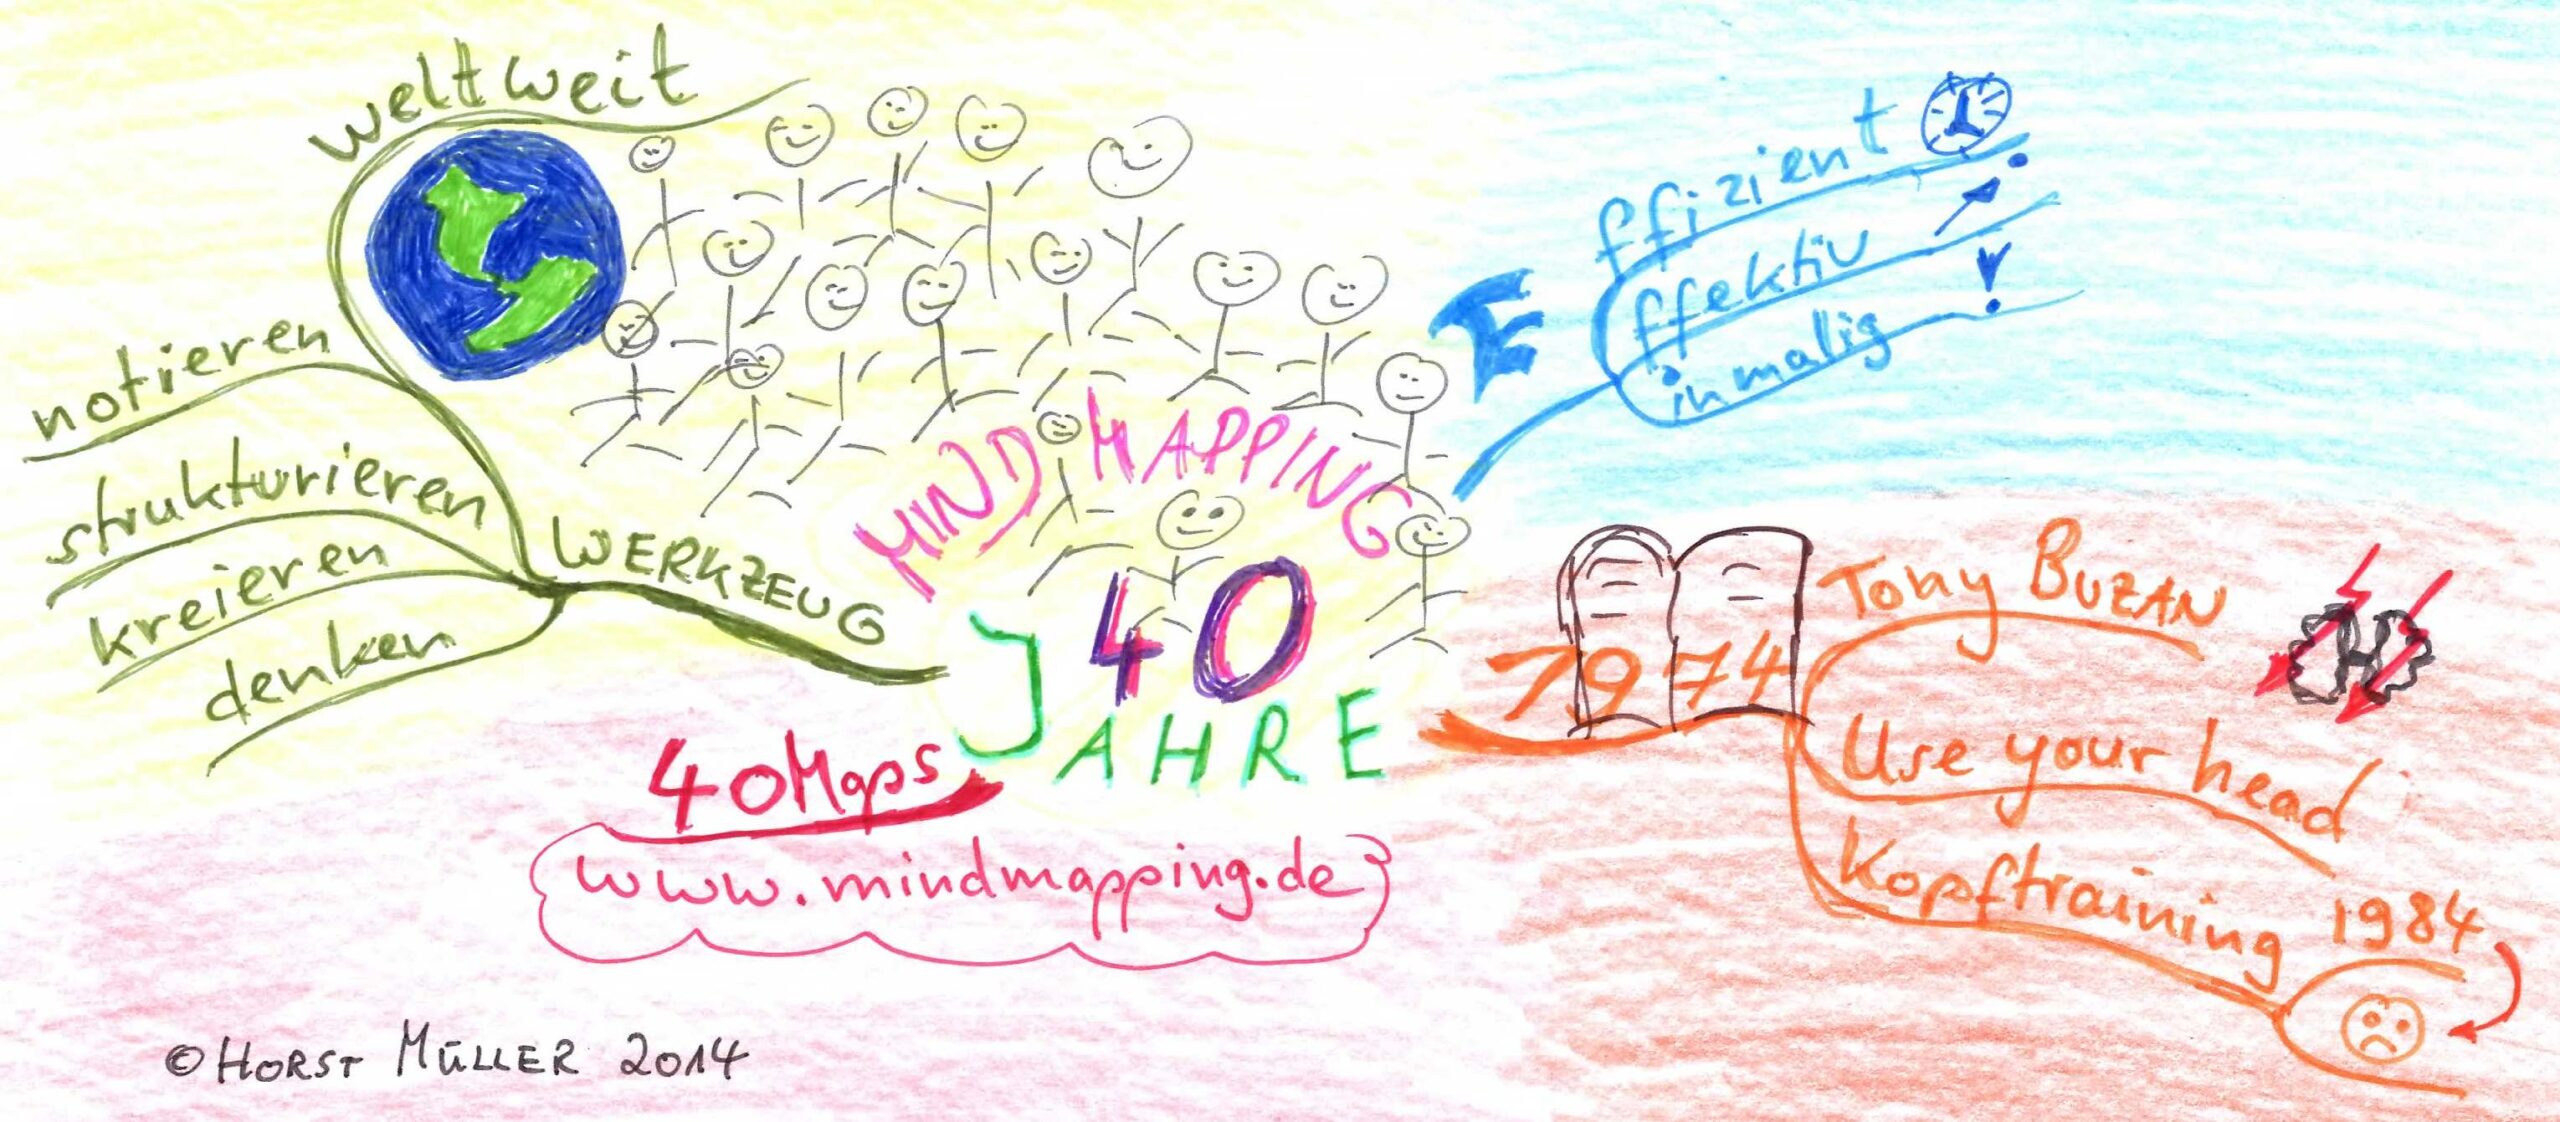 weltweit
notieren
strukturieren
kreieren
denken
WERKZEUG
MIND MAPPING
40
JAHRE
E
ffizient
ffektiv
inmalig
1974
Tony BUZAN
Use your head
Kopftraining 1984
40 Maps
www.mindmapping.de
© HORST MÜLLER 2014